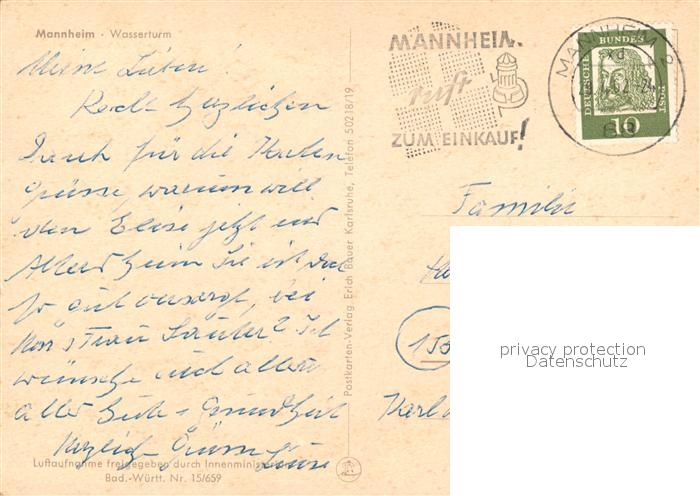 Mannheim · Wasserturm
MANNHEIM
ruft
ZUM EINKAUF!
MANNHEIM
DEUTSCHE BUNDESPOST
10
Meine Lieben!
Recht herzlichen
Dank für die Karten
grüsse, warum will
den Elise jetzt ins
Altersheim Sie ist doch
so gut versorgt, bei
Frau Sauter? Ich
wünsche euch allen
alles Gute + Gesundheit
Herzliche Grüsse
Luftaufnahme freigegeben durch Innenminist
Bad.-Württ. Nr. 15/659
Postkarten-Verlag Erich Bauer Karlsruhe, Telefon 50218/19
Familie
privacy protection
Datenschutz